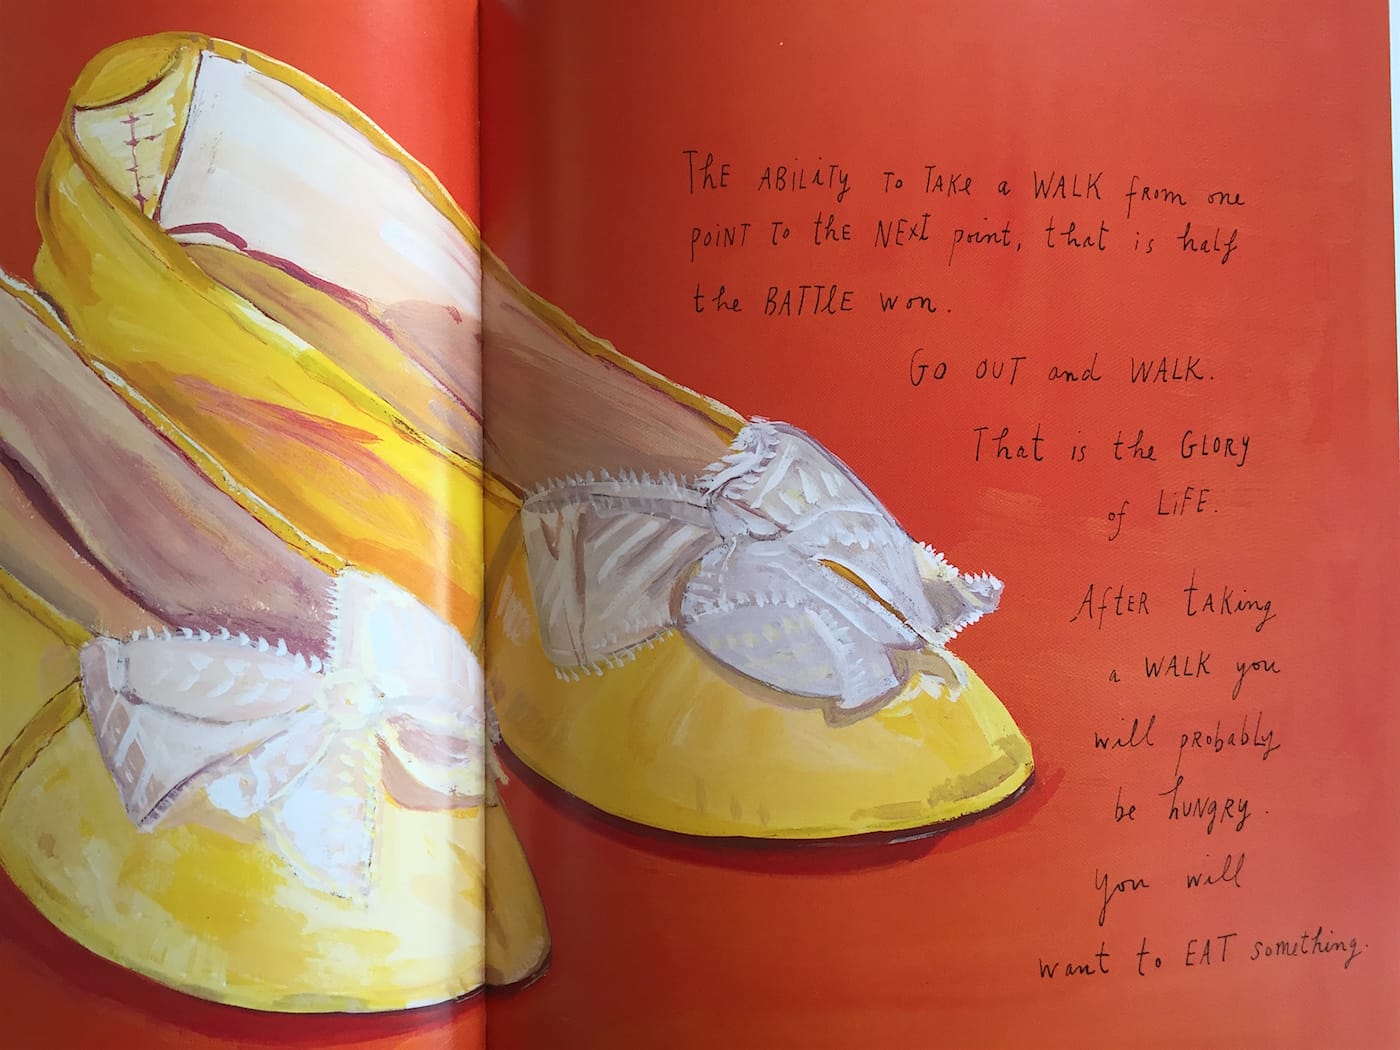 ThE ABiLiTy To TAKe a WALK from one
POiNT To thE NEXt point, that is half
the BATTlE won.
GO OUT and WALK.
That is the GLORY
of LiFE.
AfTER tAKing
a WALK you
will pRobably
be huNGRy.
You will
want to EAT something.